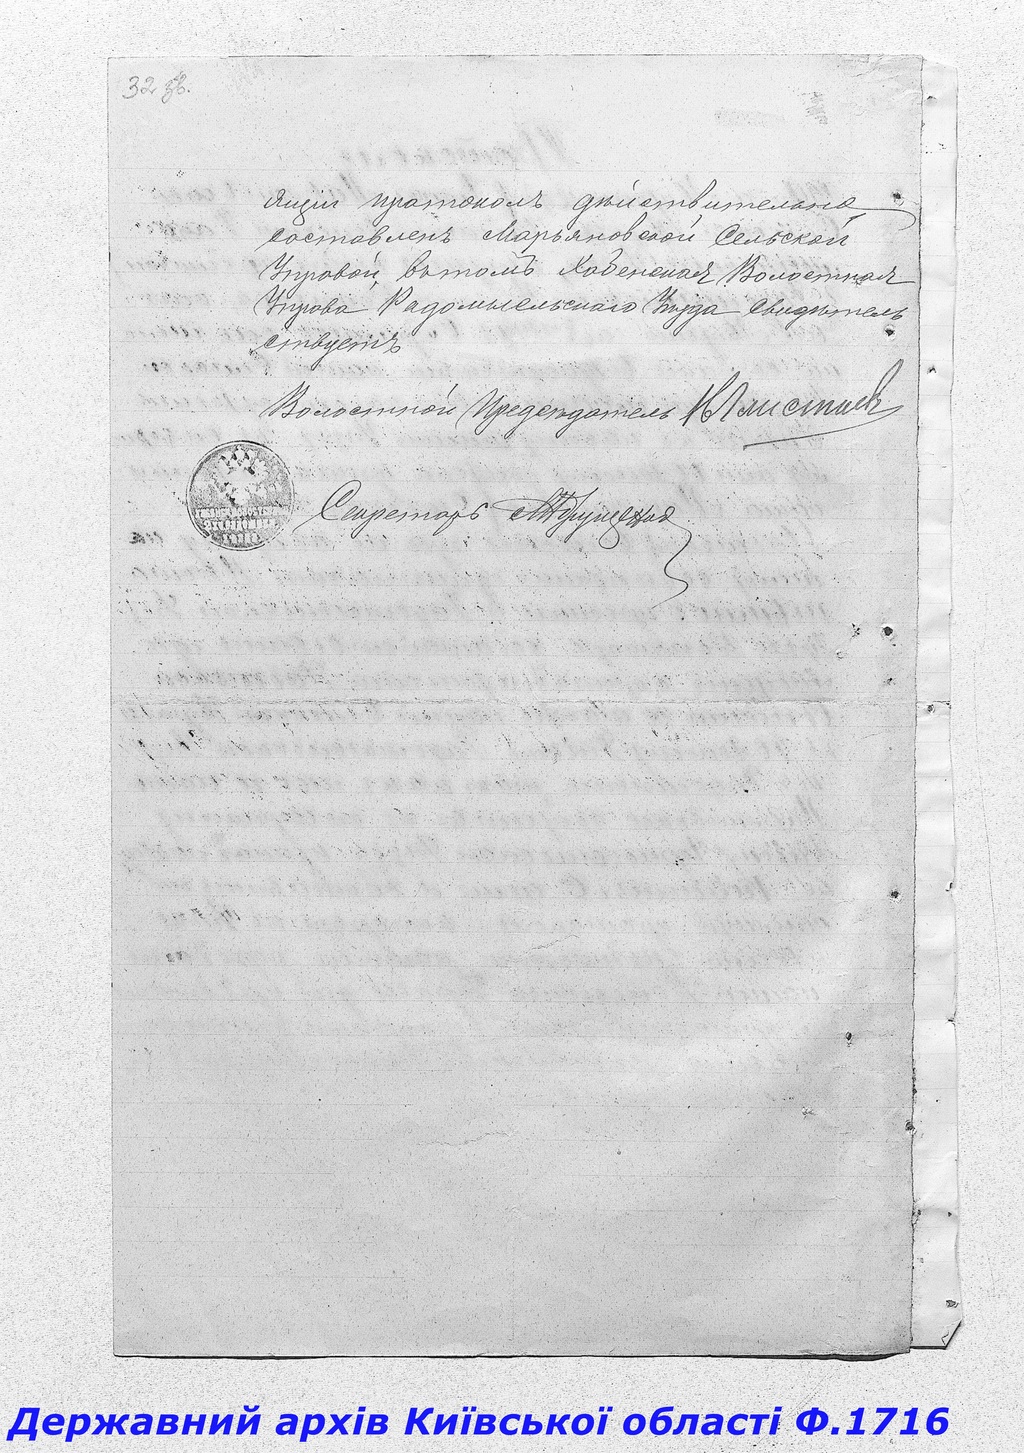 32 зв.
ящій протоколъ дѣйствительно
составленъ Марьяновской Сельской
Управой, вътомъ Хабенская Волостная
Управа Радомысльскаго Уѣзда свидѣтель
ствуетъ
Волостной Предсѣдатель
Секретарь
Державний архів Київської області Ф.1716